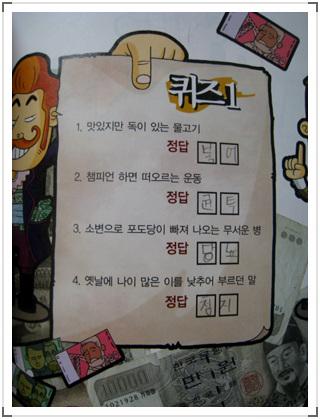 퀴즈1
1. 맛있지만 독이 있는 물고기
정답 복 어
2. 챔피언 하면 떠오르는 운동
정답 권 투
3. 소변으로 포도당이 빠져 나오는 무서운 병
정답 당 뇨
4. 옛날에 나이 많은 이를 낮추어 부르던 말
정답
10000
1021928
만 원